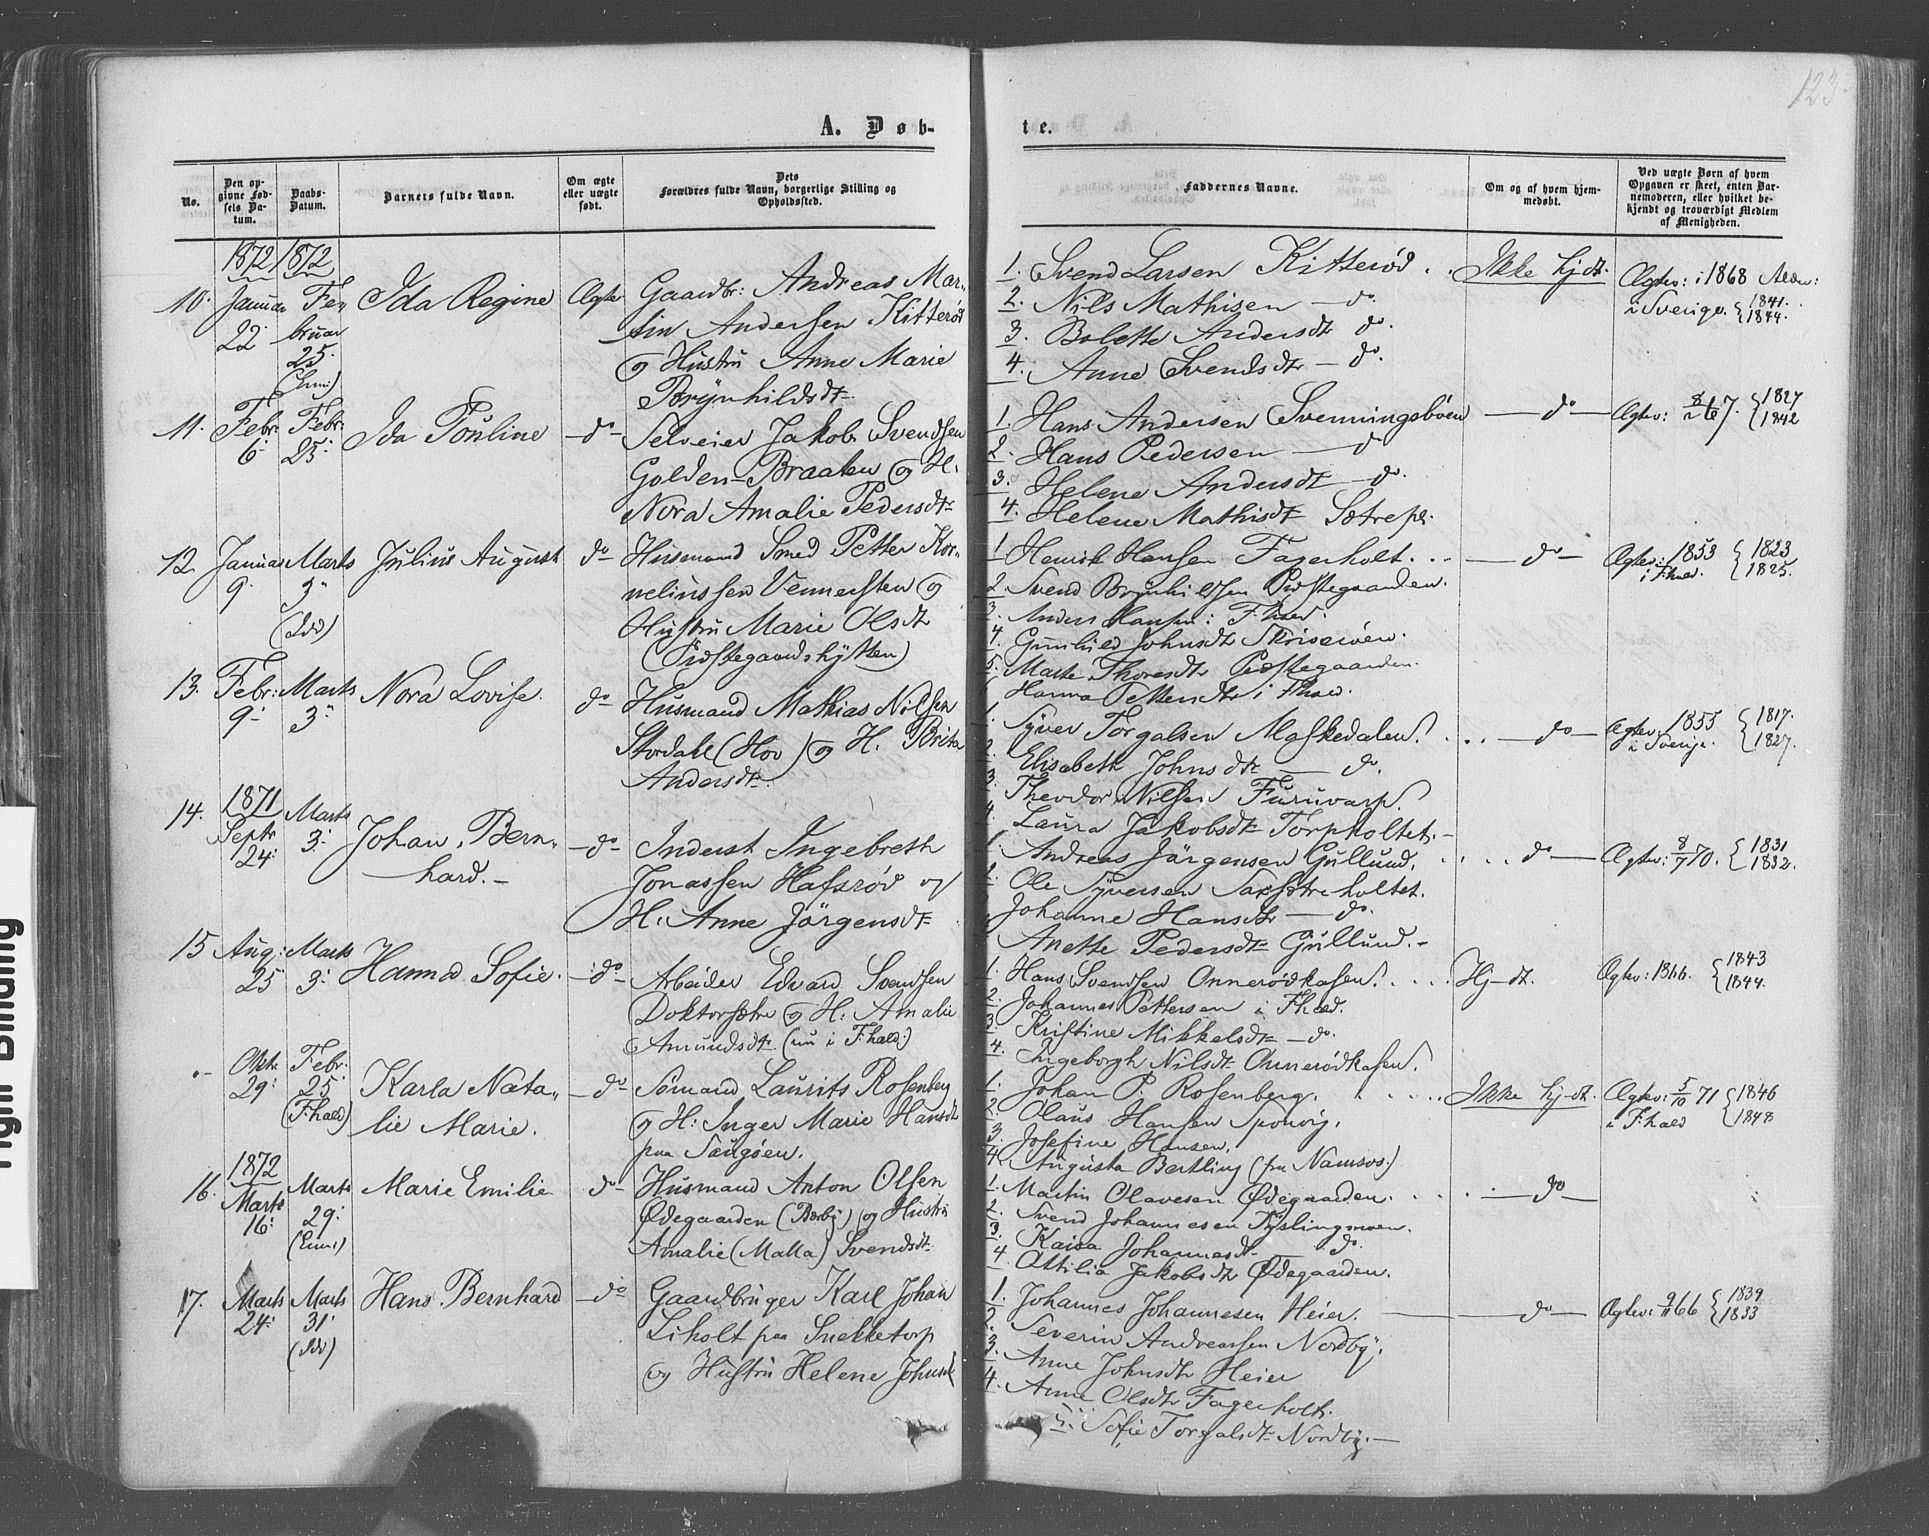 123
A. Døb-
te.
No.
Den op-
givne Fød-
sels Da-
tum.
Daabs-
Datum.
Barnets fulde Navn.
Om ægte
eller uægte
født.
Dets
Forældres fulde Navn, borgerlige Stilling og
Opholdssted.
Faddernes Navne.
Om og af hvem hjem-
medøbt.
Ved uægte Børn af hvem
Opgaven er skeet, enten Bar-
nemoderen, eller hvilket be-
kjendt og troværdigt Medlem
af Menigheden.
1872 1872
10. Januar 22. Fe-
bruar
25.
(Enni)
Ida Regine
Ægte
Gaardbr: Andreas Mar-
tin Andersen Kitterød
og Hustru Anne Marie
Brynhildsdt.
1. Svend Larsen Kitterød
2. Nils Mathisen — do.
3. Bolette Andersdt do.
4. Anne Svendsdt — do.
Ikke hj-dt.
Ægtev: i 1868
i Sverige. {1841. 1844.
11. Febr. 6 Febr. 25.
Ida Pouline
— do —
Selveier Jakob Svendsen
Golden-Braaten og H.
Nora Amalie Pedersdt
1. Hans Andersen Svenningsbøen
2. Hans Pedersen — do
3. Helene Andersdt — do.
4. Helene Mathisdt Sætrepl.
— do —
Ægtev: 8/2 67. {1827 1842
12. Januar 9. Marts 3.
(Idd)
Julius August
do
Husmand Smed Petter Kor-
neliussen Vennersten og
Hustru Marie Olsdt
(Prestegaardshytten)
1 Henrik Hansen Fagerholt.
2. Svend Brynhildsen Præstegaarden.
3. Anders Hansen i F.hald.
4. Gunhild Johnsdt
5. Marte Thoresdt Præstegaarden.
Hanna Pettersdt i F.hald.
— do —
Ægtev: 1853
i F.hald. {1823 1825.
13. Febr: 9. Marts 3.
Nora Lovise.
do
Husmand Mathias Nilsen
Stordahl (Hov) og H. Brita
Andersdt.
1. Syver Torgalsen Maskedalen.
2. Elisabeth Johnsdt — do.
3. Theodor Nilsen Furuvarp.
4. Laura Jakobsdt Torpholtet.
— do —
Ægtev. 1855
i Sverige. {1817. 1827.
14. 1871
Septr 24. Marts 3.
Johan Bern-
hard.
— do —
Inderst Ingebreth
Jonassen Hafsrød og
H. Anne Jörgensdt
1 Andreas Jörgensen Gullund.
2. Ole Syversen Saxsætreholtet.
Johanne Hansdt — do.
Anette Pedersdt Gullund.
do —
Ægtev: 8/7 70. {1831 1832.
15 Aug: 25 Marts 3.
Hanna Sofie.
— do —
Arbeider Edvard Svendsen
Doktorsætre og H. Amalie
Amundsdt (nu i F.hald.)
1. Hans Svendsen Onnerødkasen.
2. Johannes Pettersen i F.hald.
3. Kristine Mikkelsdt — do.
4. Ingeborgh Nilsdt Onnerødkasen.
Hj-dt.
Ægtev: 1866. {1843 1844.
Oktr 29. Febr. 25
(F.hald)
Karla Nata-
lie Marie.
— do
Sømand Laurits Rosenberg
og H: Inger Marie Hansdt
paa Saugøen.
1. Johan P. Rosenberg.
2. Olaus Hansen Sponvig.
3. Josefine Hansen.
4. Augusta Bertling (fra Namsos.)
Ikke hj-dt.
Ægtev: 5/10 71
i F.hald {1846 1848
16. 1872
Marts 16. Marts 29.
(Enni)
Marie Emilie.
do
Husmand Anton Olsen
Ødegaarden (Berby) og Hustru
Amalie (Malla) Svendsdt.
1. Martin Olavesen Ødegaarden.
2. Svend Johannesen Tyslingmoen.
3. Kaisa Johannesdt do.
4 Ottilia Jakobsdt Ødegaarden.
— do —
17. Marts 24. Marts 31.
(Idd)
Hans Bernhard
— do
Gaardbruger Karl Johan
Liholt paa Snekketorp
og Hustru Helene Johnsdt
1. Johannes Johannesen Heier.
2. Severin Andreassen Nordby.
3. Anne Johnsdt Heier
4. Anne Olsdt Fagerholt.
5. Sofie Torgalsdt Nordby.
— do —
Ægtev: 9/11 66 {1839 1833
Tight Binding